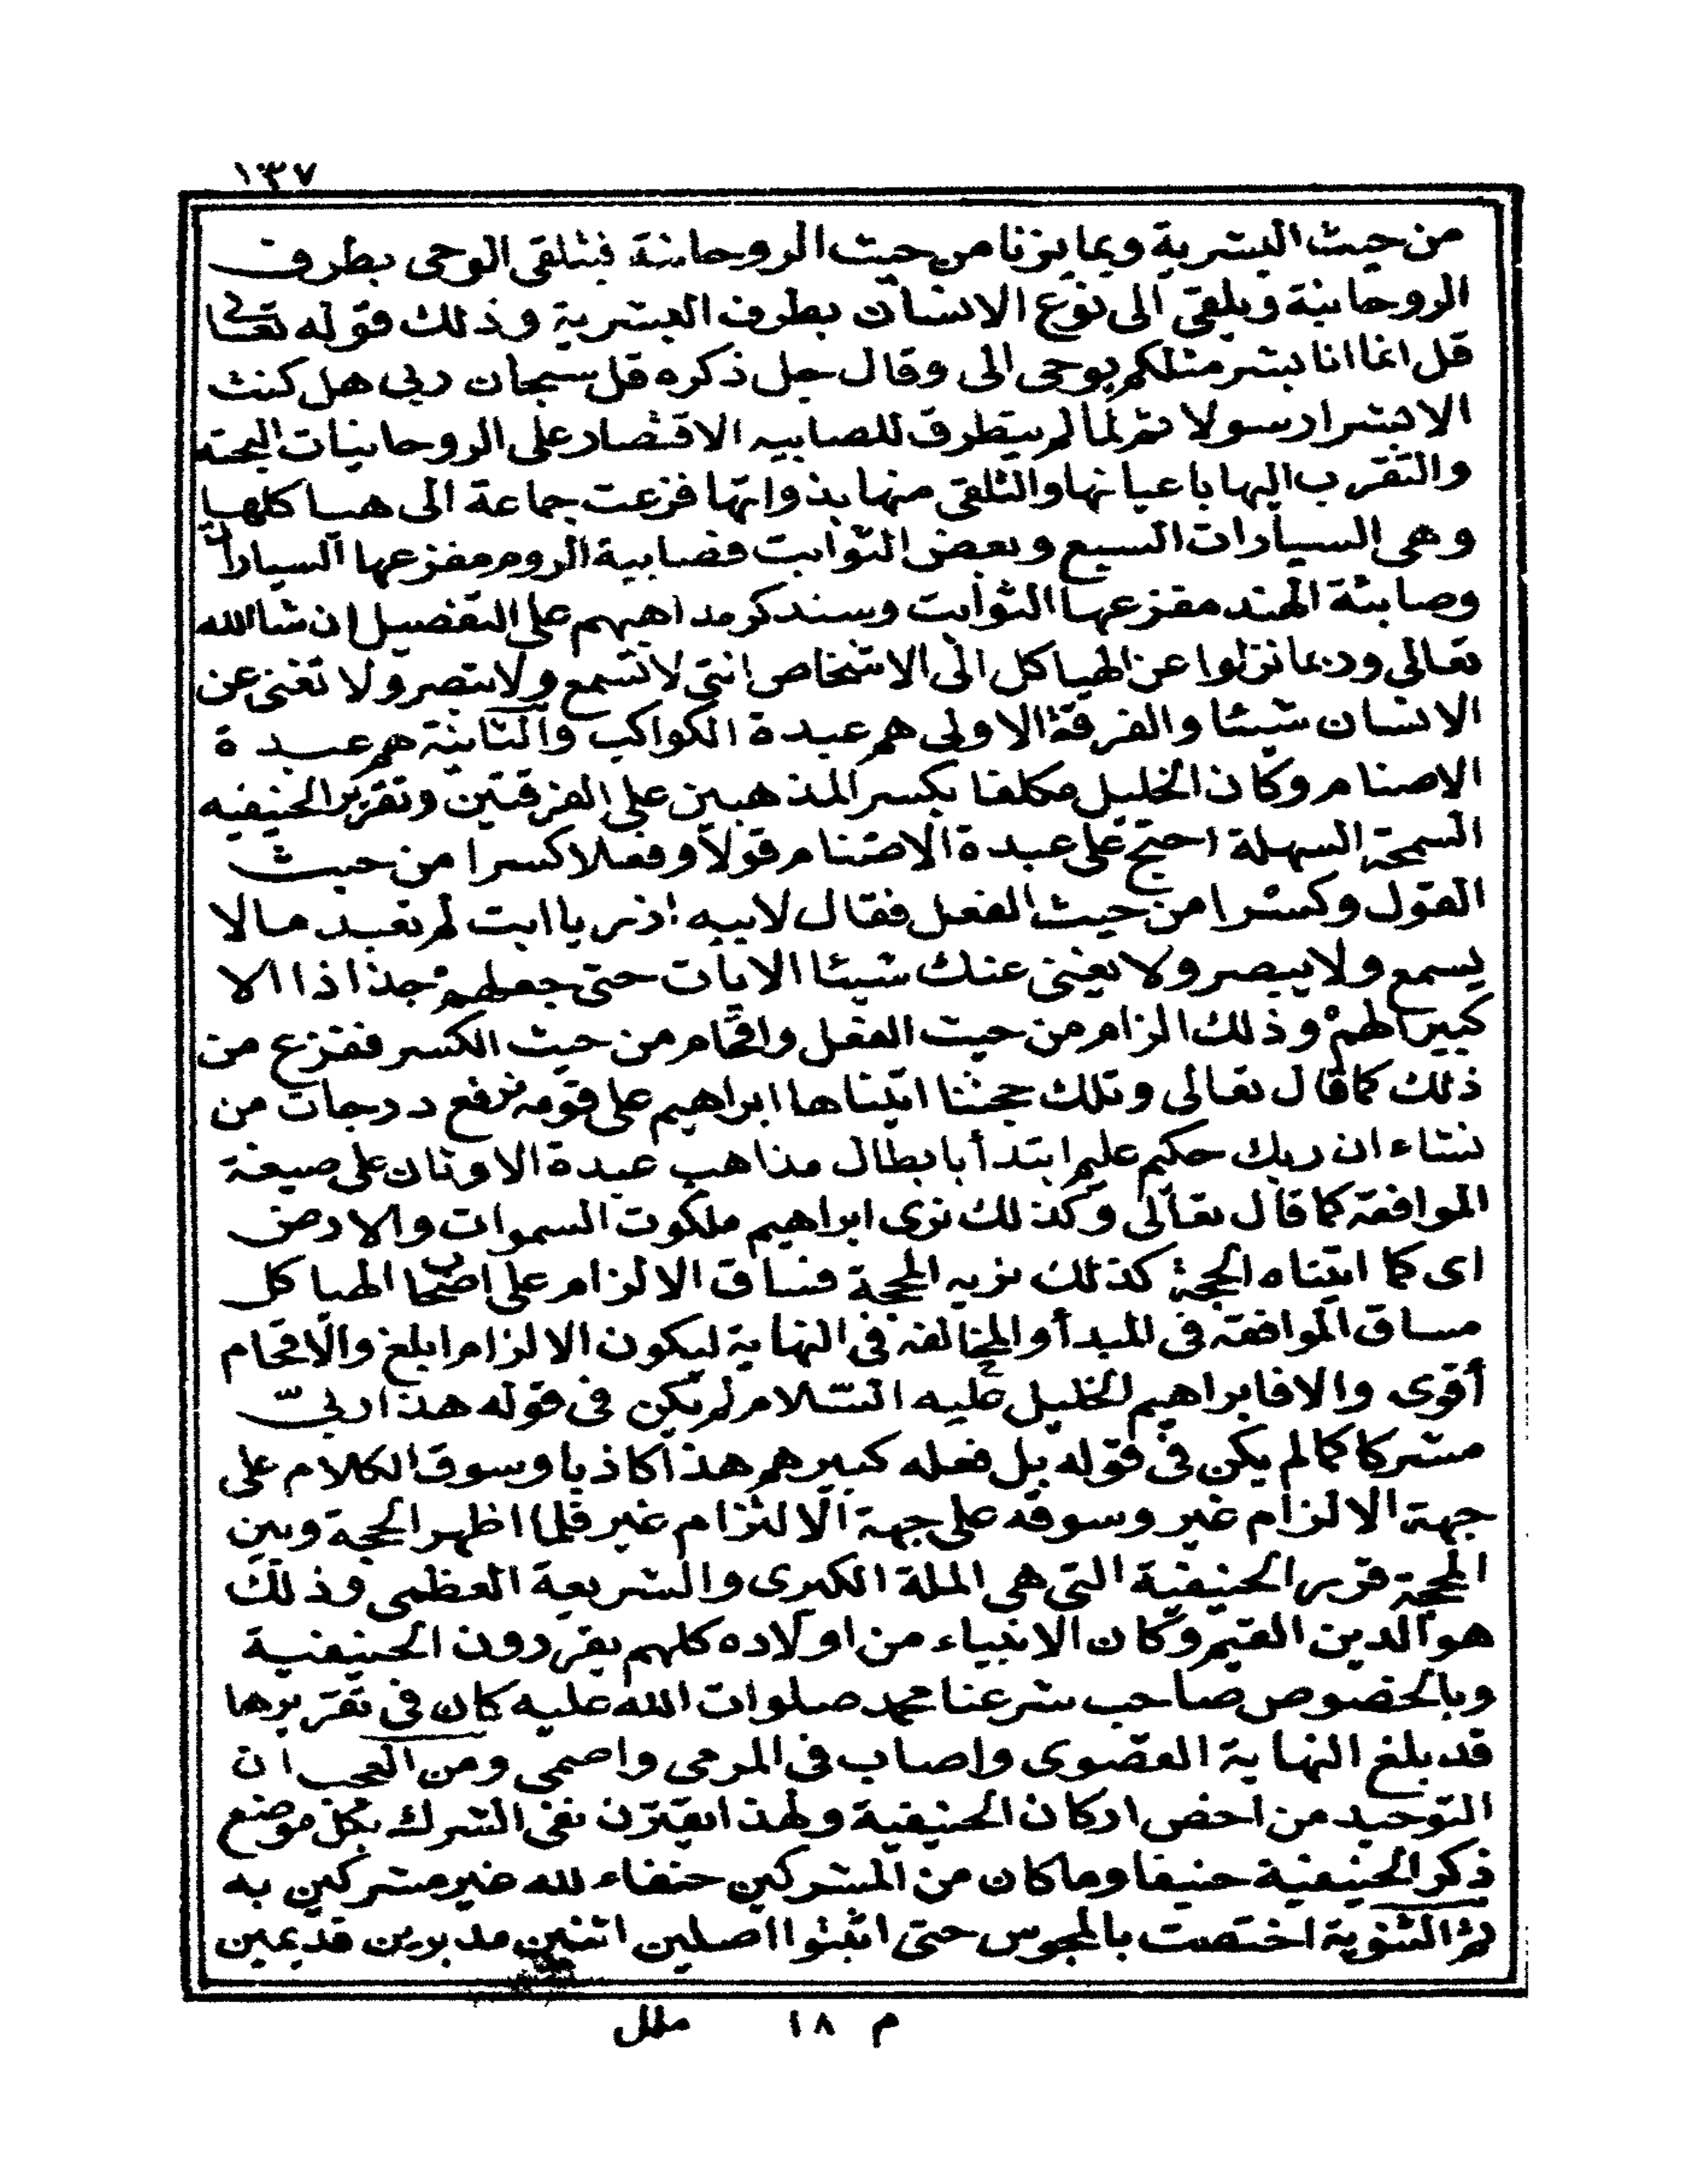 ١٣٧
من حيث البشرية ويمايزنا من حيث الروحانية فيتلقى الوحى بطرف
الروحانية ويلقى الى نوع الانسان بطرف البشرية وذلك قوله تعالى
قل انما انا بشر مثلكم يوحى الى وقال جل ذكره قل سبحان ربى هل كنت
الا بشرا رسولا ثم لما لم يتطرق للصابيه الاقتصار على الروحانيات البحته
والتقرب اليها باعيانها والتلقى منها بذواتها فزعت جماعة الى هياكلها
وهى السيارات السبع وبعض الثوابت فصابية الروم مفزعها السيارات
وصابئة الهند مفزعها الثوابت وسنذكر مذاهبهم على التفصيل ان شا الله
تعالى وربما نزلوا عن الهياكل الى الاشخاص التى لا تسمع ولا تبصر ولا تغنى عن
الانسان شيئا والفرقة الاولى هم عبدة الكواكب والثانية هم عبدة
الاصنام وكان الخليل مكلفا بكسر المذهبين على الفرقتين وتقرير الحنيفيه
السمحة السهلة احتج على عبدة الاصنام قولا وفعلا كسرا من حيث
القول وكسرا من حيث الفعل فقال لابيه اذر يا ابت لم تعبد ما لا
يسمع ولا يبصر ولا يغنى عنك شيئا الايات حتى جعلهم جذاذا الا
كبيرا لهم وذلك الزام من حيث الفعل وافحام من حيث الكسر ففزع من
ذلك كما قال تعالى وتلك حجتنا اتيناها ابراهيم على قومه نرفع درجات من
نشاء ان ربك حكيم عليم ابتدأ بابطال مذاهب عبدة الاوثان على صيغة
الموافقة كما قال تعالى وكذلك نرى ابراهيم ملكوت السموات والارض
اى كما اتيناه الحجة كذلك نريه المحجة فساق الالزام على اصحاب الهياكل
مساق الموافقة فى المبدأ والمخالفة فى النهاية ليكون الالزام ابلغ والافحام
أقوى والا فابراهيم الخليل عليه السلام لم يكن فى قوله هذا ربى
مشركا كما لم يكن فى قوله بل فعله كبيرهم هذا كاذبا وسوق الكلام على
جهة الالزام غير وسوقه على جهة الالتزام غير فلما اظهر الحجة وبين
المحجة قرر الحنيفية التى هى الملة الكبرى والشريعة العظمى وذلك
هو الدين القيم وكان الانبياء من اولاده كلهم يقررون الحنيفية
وبالخصوص صاحب شرعنا محمد صلوات الله عليه كان فى تقريرها
قد بلغ النهاية القصوى واصاب فى المرمى واصمى ومن العجب ان
التوحيد من اخص اركان الحنيفية ولهذا يقترن نفى الشرك بكل موضع
ذكر الحنيفية حنيفا وما كان من المشركين حنفاء لله غير مشركين به
ثم الثنوية اختصت بالمجوس حتى اثبتوا اصلين اثنين مدبرين قديمين
م ١٨ ملل